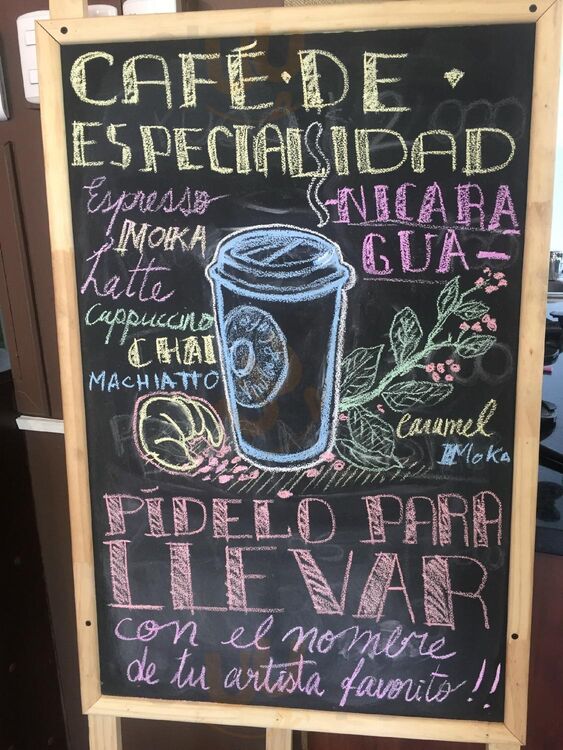 CAFÉ·DE·
ESPECIALIDAD
-NICARA
GUA-
Espresso
MOKA
Latte
Cappuccino
CHAI
MACHIATTO
Caramel
MOKA
PÍDELO PARA
LLEVAR
con el nombre
de tu artista favorito!!